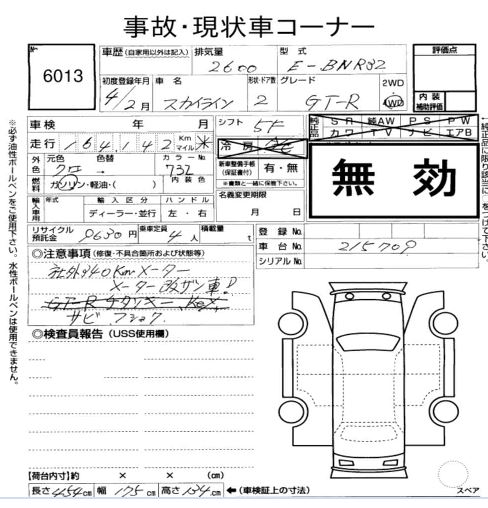 事故・現状車コーナー
№ 6013
車歴 (自家用以外は記入) 排気量 2600 型式 E-BNR32
評価点
初度登録年月 4/2月 車名 スカイライン 形状・ドア数 2 グレード GT-R 2WD 4WD
内装補助評価
車検 年 月 シフト 5F
純正品 SR 純AW PS PW
カワ TV ナビ エアB
走行 164,142 Km マイル ※
冷房
無効
外色 元色 クロ 色替 カラーNo. 732
新車整備手帳(保証書付) 有・無
※書類と一緒に保管下さい。
燃料 ガソリン・軽油・( ) 内装色
名義変更期限
月 日
輸入車用 年式 輸入区分 ハンドル
ディーラー・並行 左・右
リサイクル預託金 9630円 乗車定員 4人 積載量 t
登録No.
車台No. 215709
シリアルNo.
◎注意事項 (修復・不具合箇所および状態等)
社外340Kmメーター
メーター改ザン車!
サビ
◎検査員報告 (USS使用欄)
【荷台内寸】約 × × (cm)
長さ 454cm 幅 175cm 高さ 134cm ←(車検証上の寸法)
スペア
※必ず油性ボールペンをご使用下さい。水性ボールペンは使用できません。